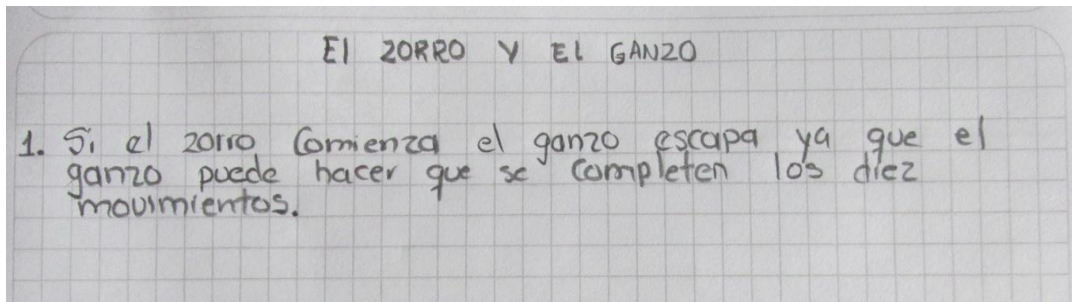 El ZORRO Y EL GANZO
1. Si el zorro Comienza el ganzo escapa ya que el
ganzo puede hacer que se completen los diez
movimientos.